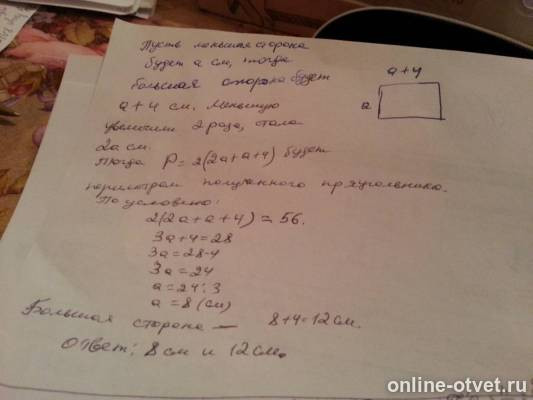 Пусть меньшая сторона
будет a см, тогда
большая сторона будет
a+4 см. Меньшую
увеличили 2 раза, стала
2a см.
Тогда P = 2(2a+a+4) будет
периметром полученного прямоугольника.
По условию:
2(2a+a+4) = 56.
3a+4=28
3a=28-4
3a=24
a=24:3
a=8 (см)
Большая сторона — 8+4=12 см.
Ответ: 8 см и 12 см.
a+4
a
online-otvet.ru